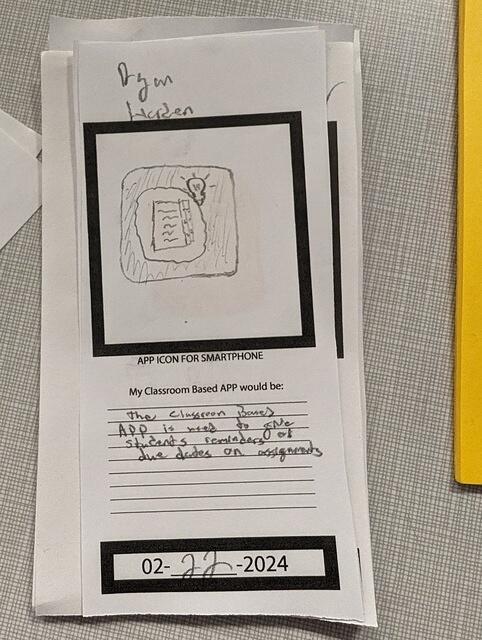 APP ICON FOR SMARTPHONE
My Classroom Based APP would be:
The Classroom Based
APP is used to give
students reminders of
due dates on assignments
02-22-2024